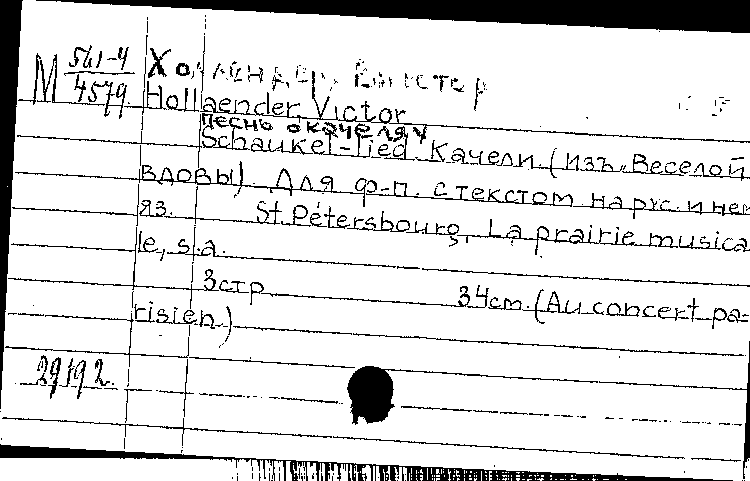 М 561-4
4579
Холлендер, Виктор
Hollaender, Victor
песнь о качелях
Schaukel-lied. Качели (изъ „Веселой
вдовы). Для ф-п. с текстом на рус. и нем
яз. St. Pétersbourg, La prairie musica
le, s.a.
3стр 34cm. (Au concert pa-
risien)
29192.